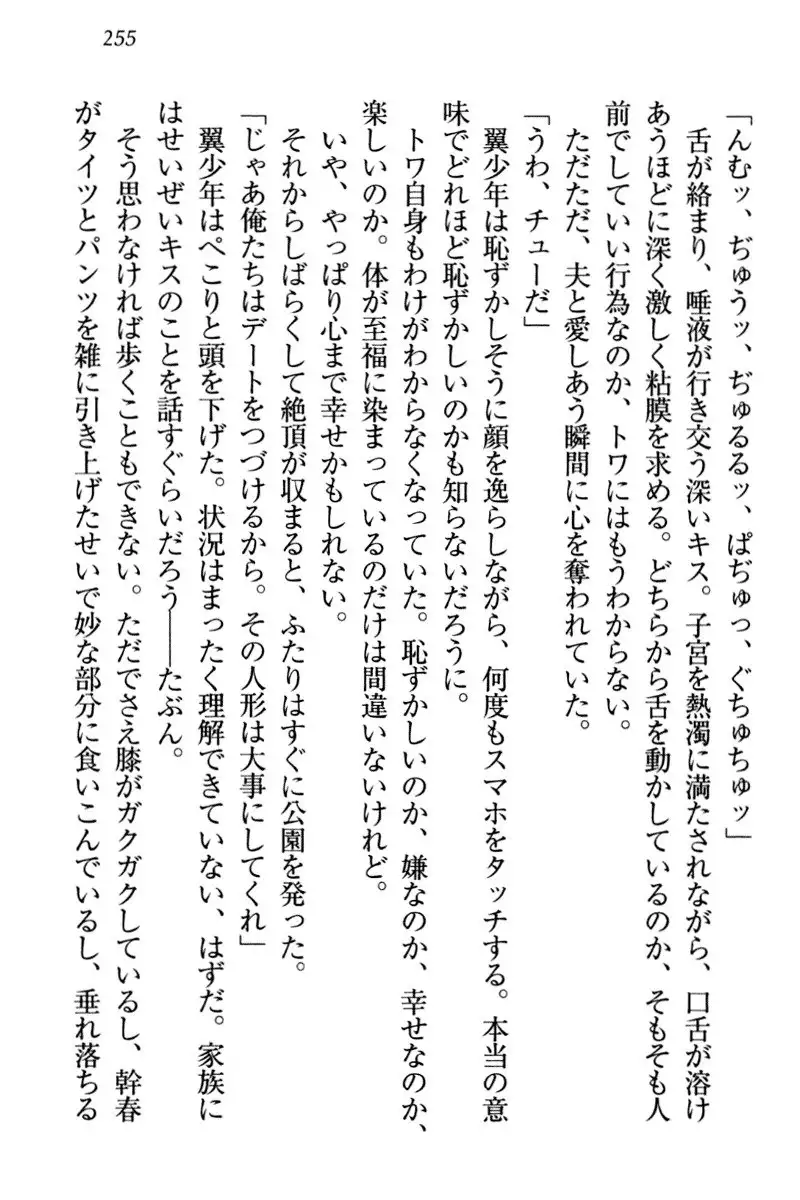 255
「んむッ、ぢゅうッ、ぢゅるるッ、ぱぢゅっ、ぐちゅちゅッ」
舌が絡まり、唾液が行き交う深いキス。子宮を熱濁に満たされながら、口舌が溶け
あうほどに深く激しく粘膜を求める。どちらから舌を動かしているのか、そもそも人
前でしていい行為なのか、トワにはもうわからない。
ただただ、夫と愛しあう瞬間に心を奪われていた。
「うわ、チューだ」
翼少年は恥ずかしそうに顔を逸らしながら、何度もスマホをタッチする。本当の意
味でどれほど恥ずかしいのかも知らないだろうに。
トワ自身もわけがわからなくなっていた。恥ずかしいのか、嫌なのか、幸せなのか、
楽しいのか。体が至福に染まっているのだけは間違いないけれど。
いや、やっぱり心まで幸せかもしれない。
それからしばらくして絶頂が収まると、ふたりはすぐに公園を発った。
「じゃあ俺たちはデートをつづけるから。その人形は大事にしてくれ」
翼少年はぺこりと頭を下げた。状況はまったく理解できていない、はずだ。家族に
はせいぜいキスのことを話すぐらいだろう――たぶん。
そう思わなければ歩くこともできない。ただでさえ膝がガクガクしているし、幹春
がタイツとパンツを雑に引き上げたせいで妙な部分に食いこんでいるし、垂れ落ちる